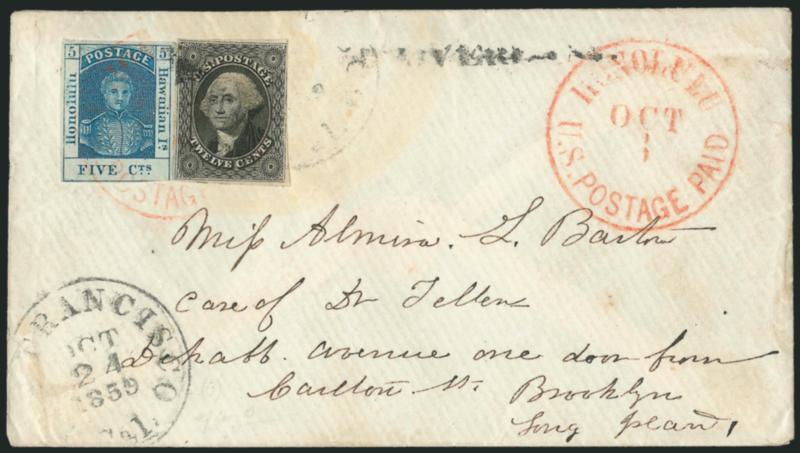 5 POSTAGE 5
Honolulu
Hawaiian Is.
FIVE CTS
U.S. POSTAGE
TWELVE CENTS
POSTAGE
HONOLULU
OCT
1
U.S. POSTAGE PAID
Miss Almira. L. Barton
Care of Dr Fellers
Dekalb. avenue one door from
Carlton St. Brooklyn
Long
FRANCISCO
OCT
24
1859
Cal.